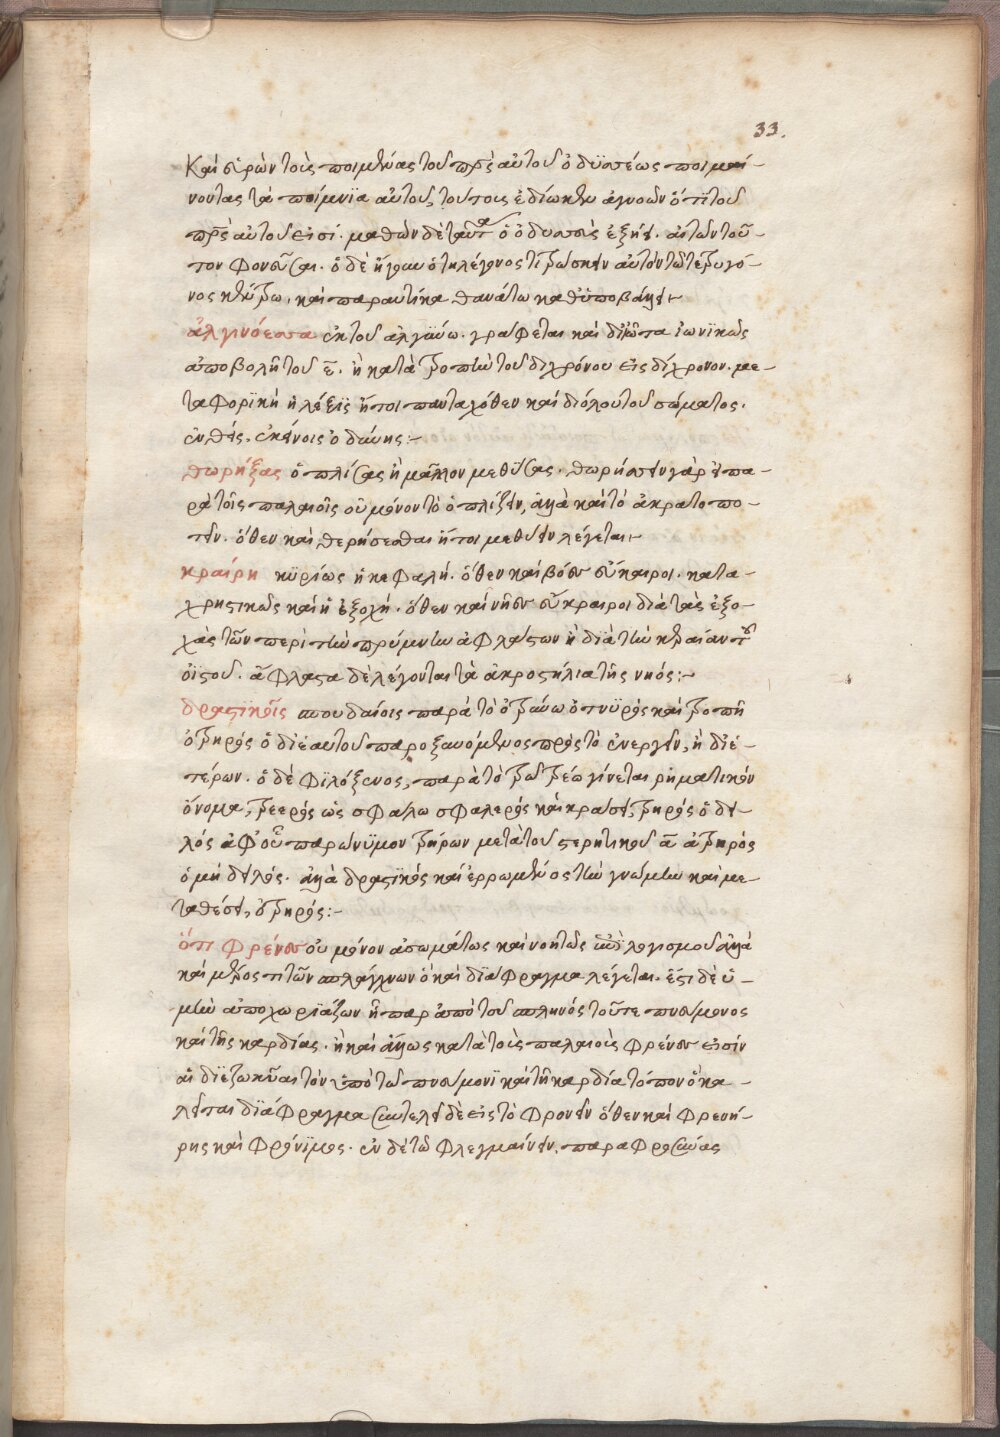 33.
Καὶ εὑρὼν τοὺς ποιμένας τοῦ πρς αὐτοῦ ὀδυσσέως ποιμαί-
νοντας τὰ ποίμνϊα αὐτοῦ, τούτους ἐδίωκεν ἀγνοῶν ὅτι τοῦ
πρς αὐτοῦ εἰσί. μαθὼν δὲ ταῦτα ὁ ὀδυσσεὺς ἐξῄει. αὐτὸν τοῦ-
τον φονεῦσαι. ὁ δὲ ἤγουν ὁ τηλέγονος τιτρώσκειν αὐτὸν τῶ τε τρυγό-
νος κέντρω, καὶ παραυτίκα θανάτω καθϋποβάλλει
ἀλγινόεσσα ἐκ τοῦ ἀλγύνω. γράφεται καὶ διὰ ἰῶτα ἰωνϊκῶς
ἀποβολῆ τοῦ ε. ἢ κατὰ τροπὴν τοῦ διχρόνου εἰς δίχρονον. με-
ταφορϊκὴ ἡ λέξϊς ἤτοι πανταχόθεν καὶ διόλου τοῦ σώματος.
ἐκείνοις ὀδύνης:-
θωρήξας ὁπλίσας ἢ μᾶλλον μεθύσας. θωρήσσειν γὰρ πα-
ρὰ τοῖς παλαιοῖς οὐ μόνον τὸ ὁπλίζειν, ἀλλὰ καὶ τὸ ἀκρατοπο-
τεῖν. ὅθεν καὶ θερήσεσθαι ἤτοι μεθύειν λέγεται
κραίρη κϋρίως ἡ κεφαλή. ὅθεν καὶ βόες εὔκαιροι. κατα-
χρηστικῶς καὶ ἡ ἐξοχή. ὅθεν καὶ νῆες εὔκραιροι διὰ τὰς ἐξο-
χὰς τῶν περὶ τὴν πρύμνην ἀφλάστων ἢ διὰ τὴν κεραίαν τοῦ
ϊστοῦ. ἄφλαστα δὲ λέγονται τὰ ἀκροστήλια τῆς νηός:-
δραστϊκοῖς σπουδαίοις παρὰ τὸ ὀτρύνω ὀτρυρὸς καὶ τροπῆ
ὀτρηρὸς ὁ δι' ἑαυτοῦ παροξυνόμενος πρὸς τὸ ἐνεργεῖν, ἢ δι' ἑ-
τέρων. ὁ δὲ φϊλόξενος, παρὰ τὸ τρῶ τρέω γίνεται ῥηματικὸν
ὄνομα, τρεερὸς ὡς σφάλλω σφαλερὸς καὶ κράσει, τρηρὸς ὁ δει-
λὸς ἀφ' οὗ παρώνϋμον τρήρων μετὰ τοῦ στερητικοῦ α ἀτρηρὸς
ὁ μὴ δειλός. ἀλλὰ δραστϊκὸς καὶ ἐρρωμένος τὴν γνώμην καὶ με-
ταθέσει, ὀτρηρός:-
ὅτι φρένες οὐ μόνον ἀσωμάτως καὶ νοητῶς λογισμοῦ ἀλλὰ
καὶ μέρος τι τῶν σπλάγχνων ὃ καὶ διάφραγμα λέγεται. ἔστι δὲ ὑ-
μὴν ἀποχωρϊάζων ἧπαρ ἀπὸ τοῦ σπληνὸς τοῦ τε πνεύμονος
καὶ τῆς καρδίας. ἢ καὶ ἄλλως κατὰ τοὺς παλαιοὺς φρένες εἰσὶν
αἱ διεζωκῦαι τὸν ὑπὸ τῶ πνεύμονϊ καὶ τῆ καρδία τόπον ὃ κα-
λεῖται διάφραγμα συντελεῖ δὲ εἰς τὸ φρονεῖν ὅθεν καὶ φρενή-
ρης καὶ φρόνϊμος. ἐν δὲ τῶ φλεγμαίνειν, παραφροσύνας